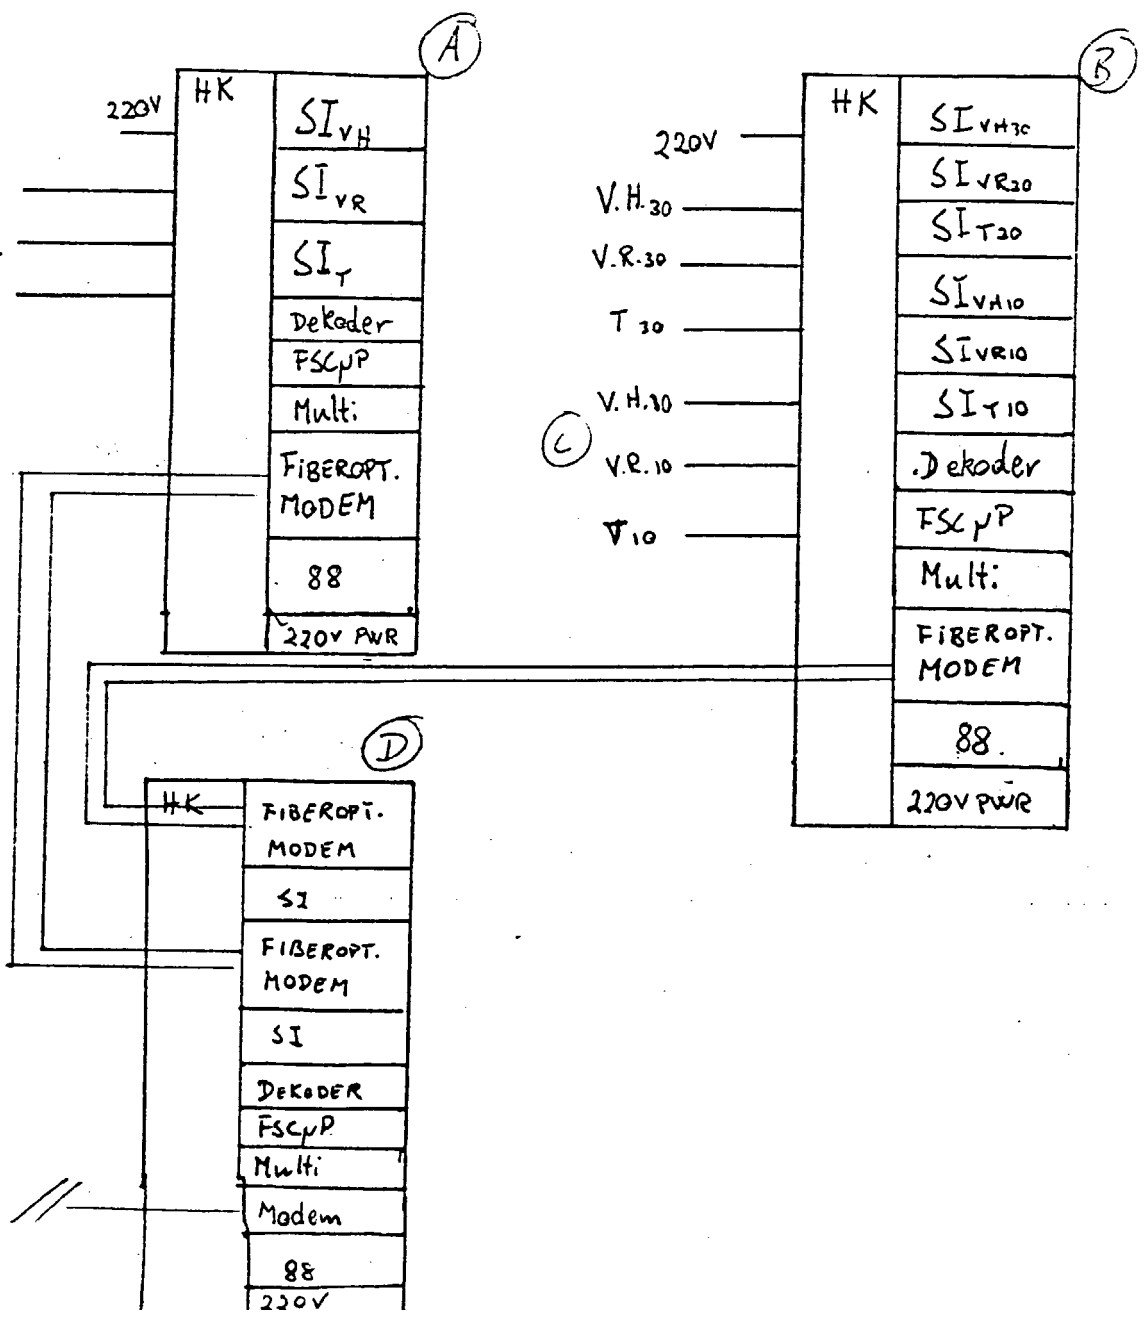 A
HK
220V
SI VH
SI VR
SI T
Dekoder
FSCµP
Multi
FIBEROPT.
MODEM
88
220V PWR
B
HK
220V
V.H.30
V.R.30
T 30
V.H.10
C
V.R.10
T10
SI VH30
SI VR20
SI T20
SI VH10
SI VR10
SI T10
.Dekoder
FSCµP
Multi
FIBEROPT.
MODEM
88.
220V PWR
D
HK
FIBEROPT.
MODEM
SI
FIBEROPT.
MODEM
SI
DEKODER
FSCµP
Multi
Modem
88
220V